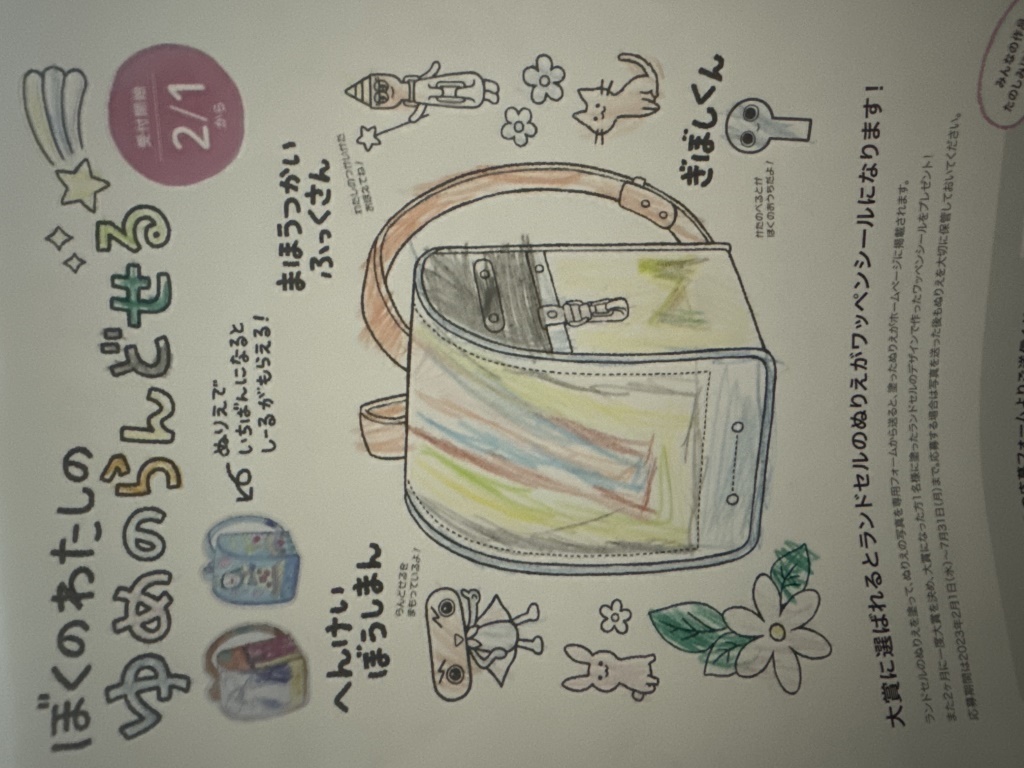 ぼくのわたしの
ゆめのらんどせる
受付開始
2/1
から
ぬりえで
いちばんになると
しーるがもらえる!
まほうつかい
ふっくさん
わたしのつけいけた
おぼえてね!
へんけい
ぼうしまん
らんどせるを
まもっているよ!
ぎぼしくん
かたのべるとが
ぼくのおうちだよ!
大賞に選ばれるとランドセルのぬりえがワッペンシールになります!
ランドセルのぬりえを塗って、ぬりえの写真を専用フォームから送ると、塗ったぬりえがホームページに掲載されます。
また2ヶ月に一度大賞を決め、大賞になった方1名様に塗ったランドセルのデザインで作ったワッペンシールをプレゼント!
応募期間は2023年2月1日(水)〜7月31日(月)まで。応募する場合は写真を送った後もぬりえを大切に保管しておいてください。
みんなの作品